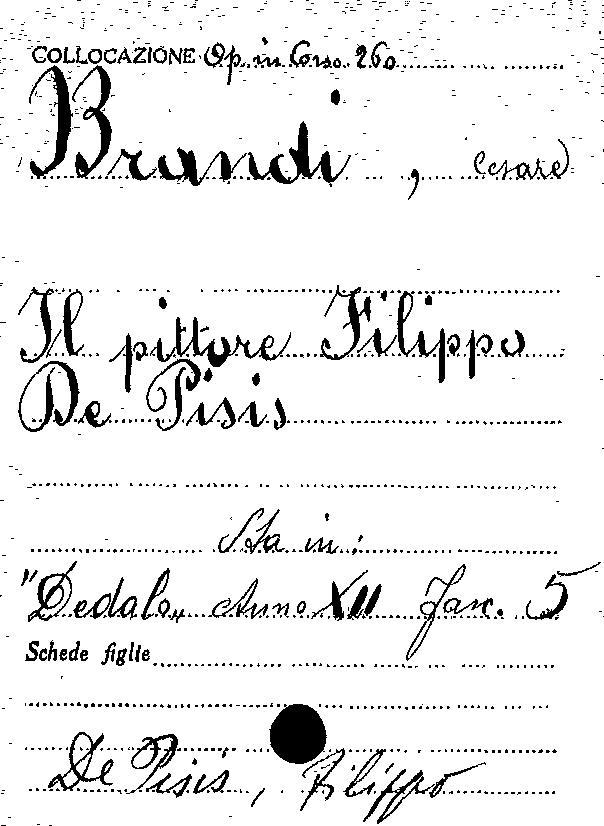 COLLOCAZIONE Op. in Corso 260
Brandi, Cesare
Il pittore Filippo
De Pisis
Sta in:
"Dedalo„ Anno XII Fasc. 5
Schede figlie
De Pisis, Filippo